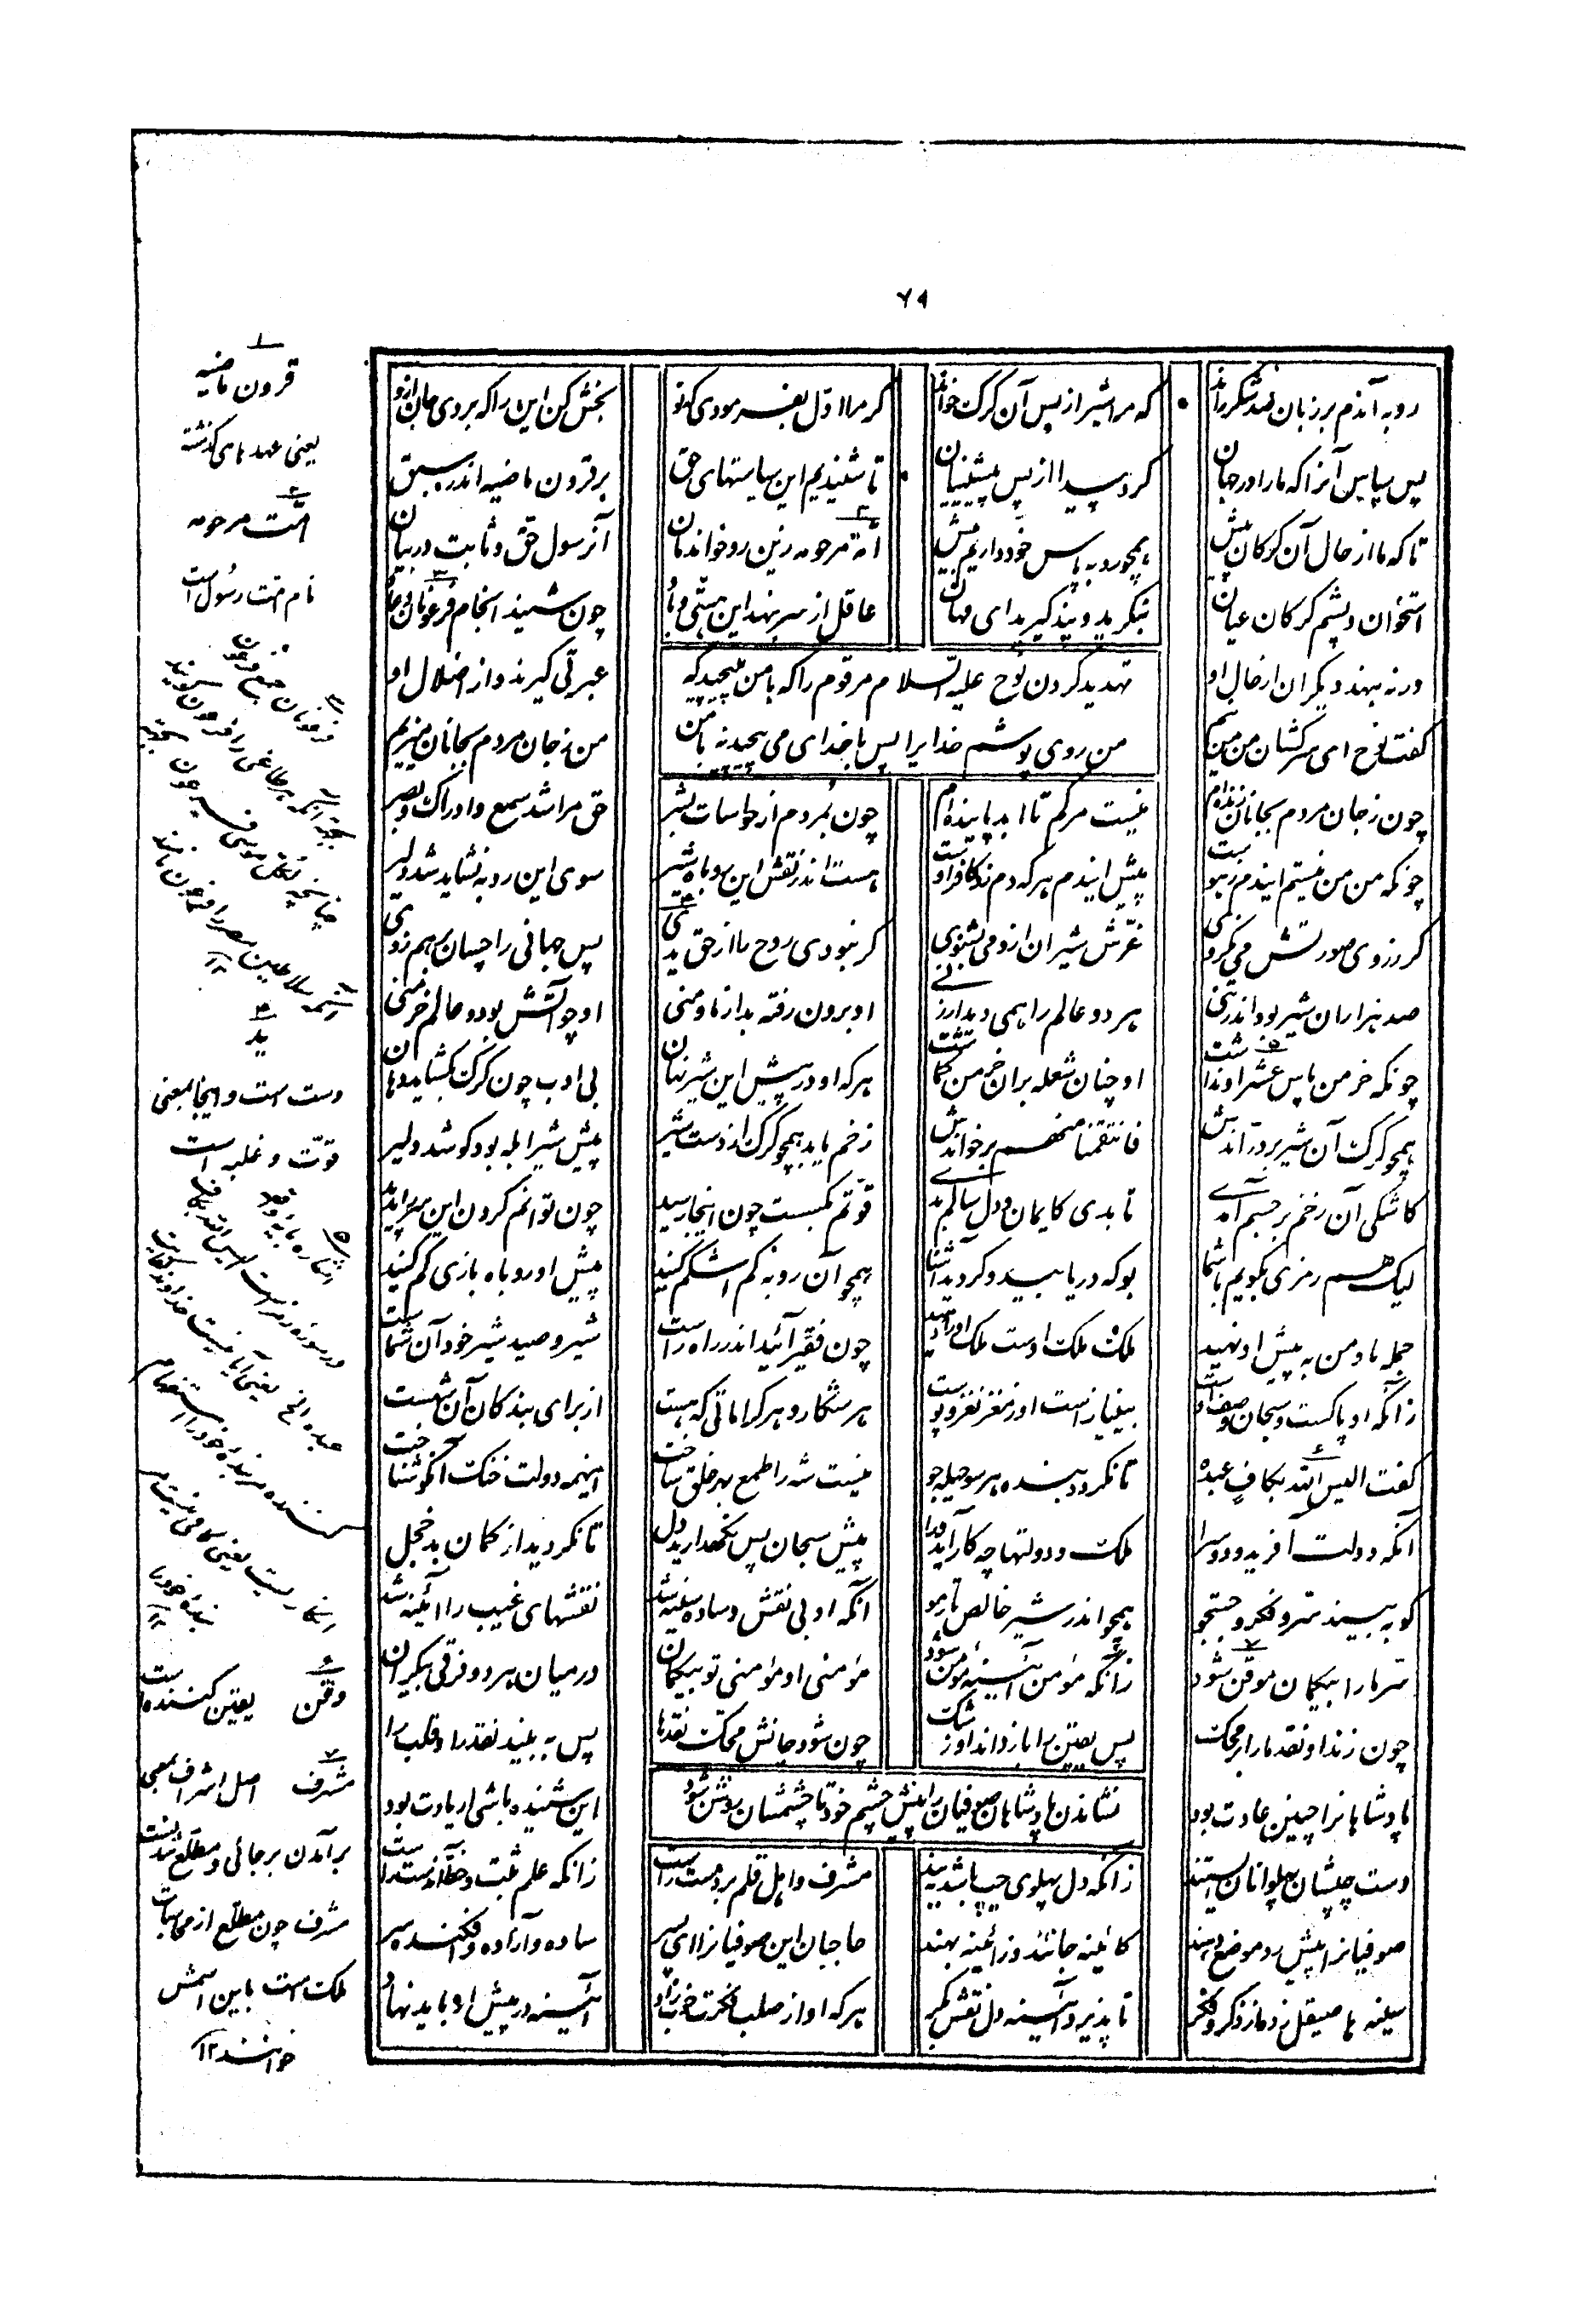 ۷۹
روبه آندم بر زبان صد شکر راند که مرا شیر از پس آن گرگ خواند گر مرا اول بفرمودی که تو بخش کن این را که بردی جان ازو
پس سپاس آنرا که ما را در جهان کرد پیدا از پس پیشینیان تا شنیدیم این سیاستهای حق بر قرون ماضیه اندر سبق
تا که ما از حال آن گرگان پیش همچو روبه پاس خود داریم بیش امة مرحومه زین رو خواندمان آن رسول حق و ثابت در بیان
استخوان و پشم گرگان عیان بنگرید و پند گیرید ای مهان عاقل از سر بنهد این هستی و باد چون شنید انجام فرعونان و عاد
ورنه بنهد دیگران از حال او عبرتی گیرند و از اضلال او
تهدید کردن نوح علیه السلام مر قوم را که با من مپیچید که
من روی پوشم خدایرا پس با خدای می پیچید نه با من
گفت نوح ای سرکشان من من نیم من ز جان مردم بجانان میزیم
چون ز جان مردم بجانان زنده‌ام نیست مرگم تا ابد پاینده‌ام چون بمردم از حواسات بشر حق مرا شد سمع و ادراک و بصر
چونکه من من نیستم ایندم ز هوست پیش ایندم هر که دم زد کافر اوست هست اندر نقش این روباه شیر سوی این روبه نشاید شد دلیر
گر ز روی صورتش می نگروی غرش شیران ازو می نشنوی گر نبودی نوح را از حق یدی پس جهانی را چسان برهم زدی
صد هزاران شیر بود اندر تنی هر دو عالم را همی دید ارزنی او برون رفته بد از ما و منی او چو آتش بود و عالم خرمنی
چونکه خرمن پاس عشر او نداشت او چنان شعله بران خرمن گماشت هر که او در پیش این شیر نهان بی ادب چون گرگ بگشاید دهان
همچو گرگ آن شیر بر درّاندش فانتقمنا منهم بر خواندش زخم یابد همچو گرگ از دست شیر پیش شیر ابله بود کو شد دلیر
کاشکی آن زخم بر جسم آمدے تا بدی کایمان و دل سالم بدے قوتم بگسست چون اینجا رسید چون توانم کردن این سر را پدید
لیک هم رمزی بگویم با شما بو که دریابید و گردید آشنا همچو آن روبه کم اشکم کنید پیش او روباه بازی کم کنید
جمله ما و من به پیش او نهید ملک ملک اوست ملک او را دهید چون فقیر آئید اندر راه راست شیر و صید شیر خود آن شماست
زانکه او پاکست و سبحان وصف اوست بینیاز است او ز مغز نغز و پوست هر شکار و هر کراماتی که هست از برای بندگان آن شه است
گفت الیس الله بکافٍ عبده تا نگردد بنده هر سو حیله جو نیست شه را طمع بهر خلق ساخت اینهمه دولت خنک آنکو شناخت
آنکه دولت آفرید و دو سرا ملک و دولتها چه کار آید ورا پیش سبحان پس نگهدارید دل تا نگردید از گمان بد خجل
کو به بیند سرّ و فکر و جستجو همچو اندر شیر خالص تار مو آنکه او بی نقش و ساده سینه شد نقشهای غیب را آئینه شد
سرّ ما را بیگمان موقن شود زانکه مؤمن آئینه مؤمن شود مؤمنی او مؤمنی تو بیگمان در میان هر دو فرقی بیکران
چون زند او نقد ما را بر محک پس یقین را باز داند او ز شک چون شود جانش محک نقدها پس به بیند نقد را و قلب را
نشاندن پادشاهان صوفیان را پیش چشم خود تا چشمشان روشن شود
پادشاهانرا چنین عادت بود این شنیده باشی ار یادت بود
دست چپشان پهلوانان ایستند زانکه دل پهلوی چپ باشد به بند مشرف و اهل قلم بر دست راست زانکه علم ثبت و خط آن دست راست
صوفیانرا پیش رو موضع دهند کائینه جانند و ز آئینه بهند حاجبان این صوفیانرا ای پسر ساده و آزاده و افکنده سر
سینه ها صیقل زده از ذکر و فکر تا پذیرد آئینه دل نقش بکر هر که او از صلب فطرت خوب زاد آئینه در پیش او باید نهاد
۱
قرون ماضیه
یعنی عهدهای گذشته
۲
امّت مرحومه
نام امّت رسول است
۳
فرعونان جمع فرعون
۴
ید
دست است و اینجا بمعنی
قوّت و غلبه است
۵
۶
موقن یقین کننده است
۷
مشرف اصل اشراف بمعنی
برآمدن بر جائی و مطلع شدنست
مشرف چون مطلع از محاسبات
ملک است باین اسمش
خوانند ۱۲